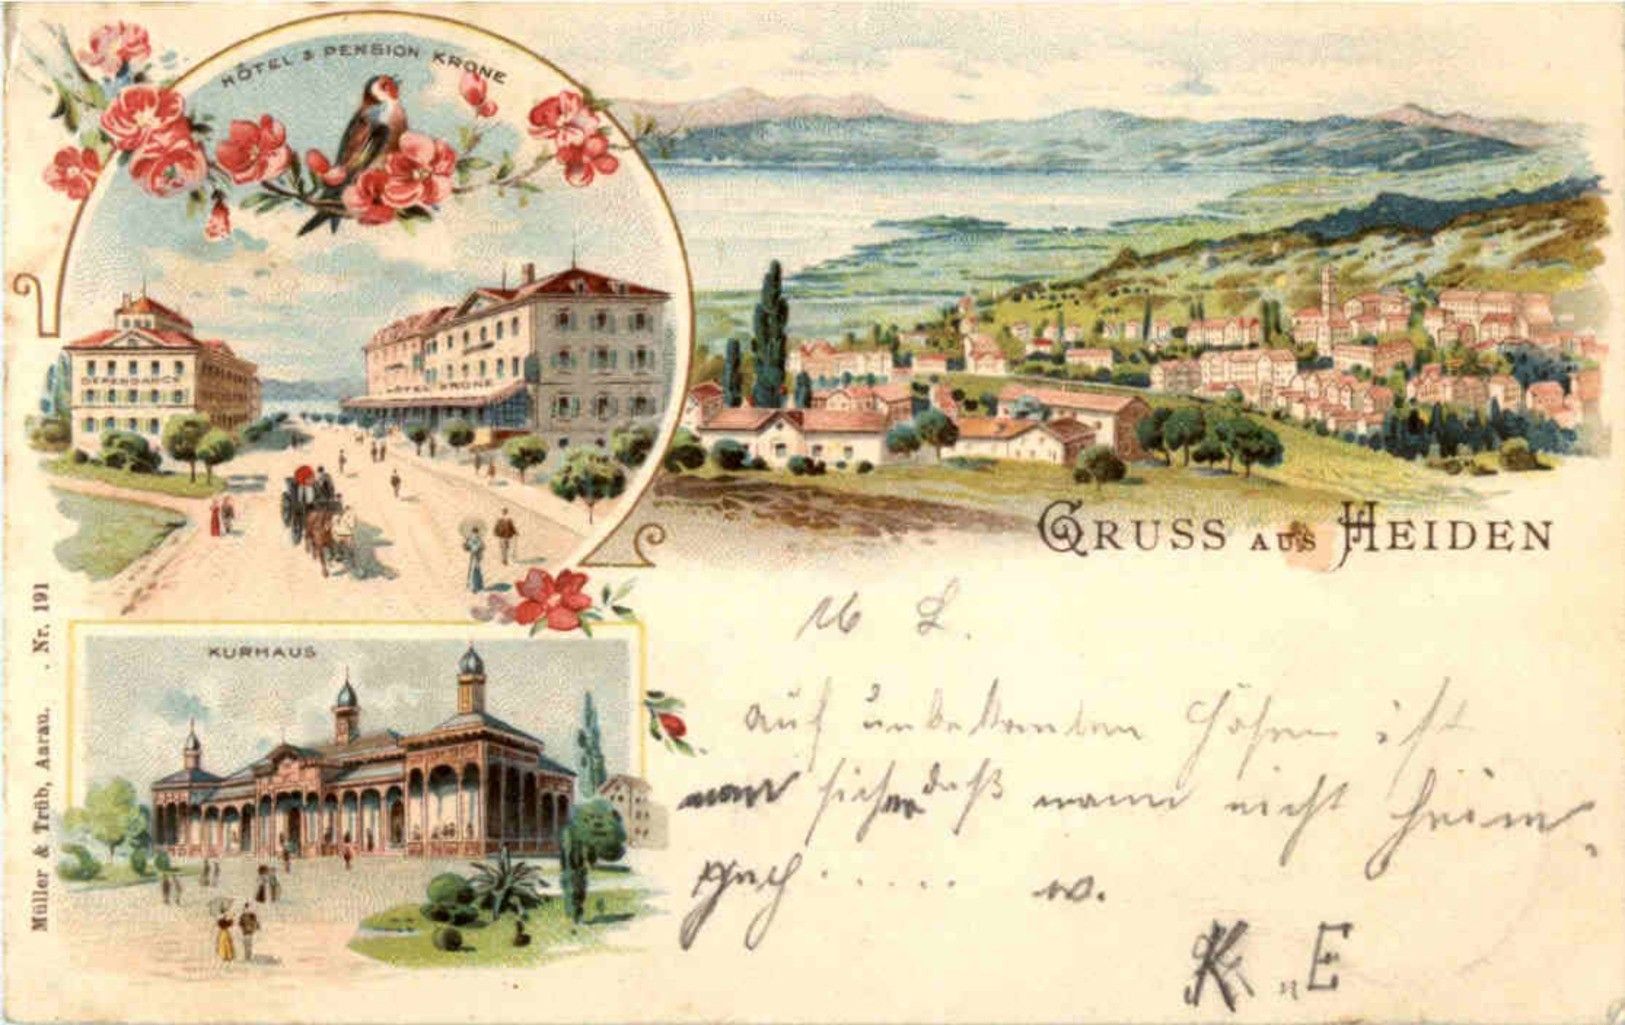 HÔTEL & PENSION KRONE
DEPENDANCE
HÔTEL KRONE
GRUSS AUS HEIDEN
KURHAUS
Müller & Trüb, Aarau. . Nr. 191
M L.
auf unbekannten Höhen ist
man sicher daß mann nicht heim
w.
K. „E